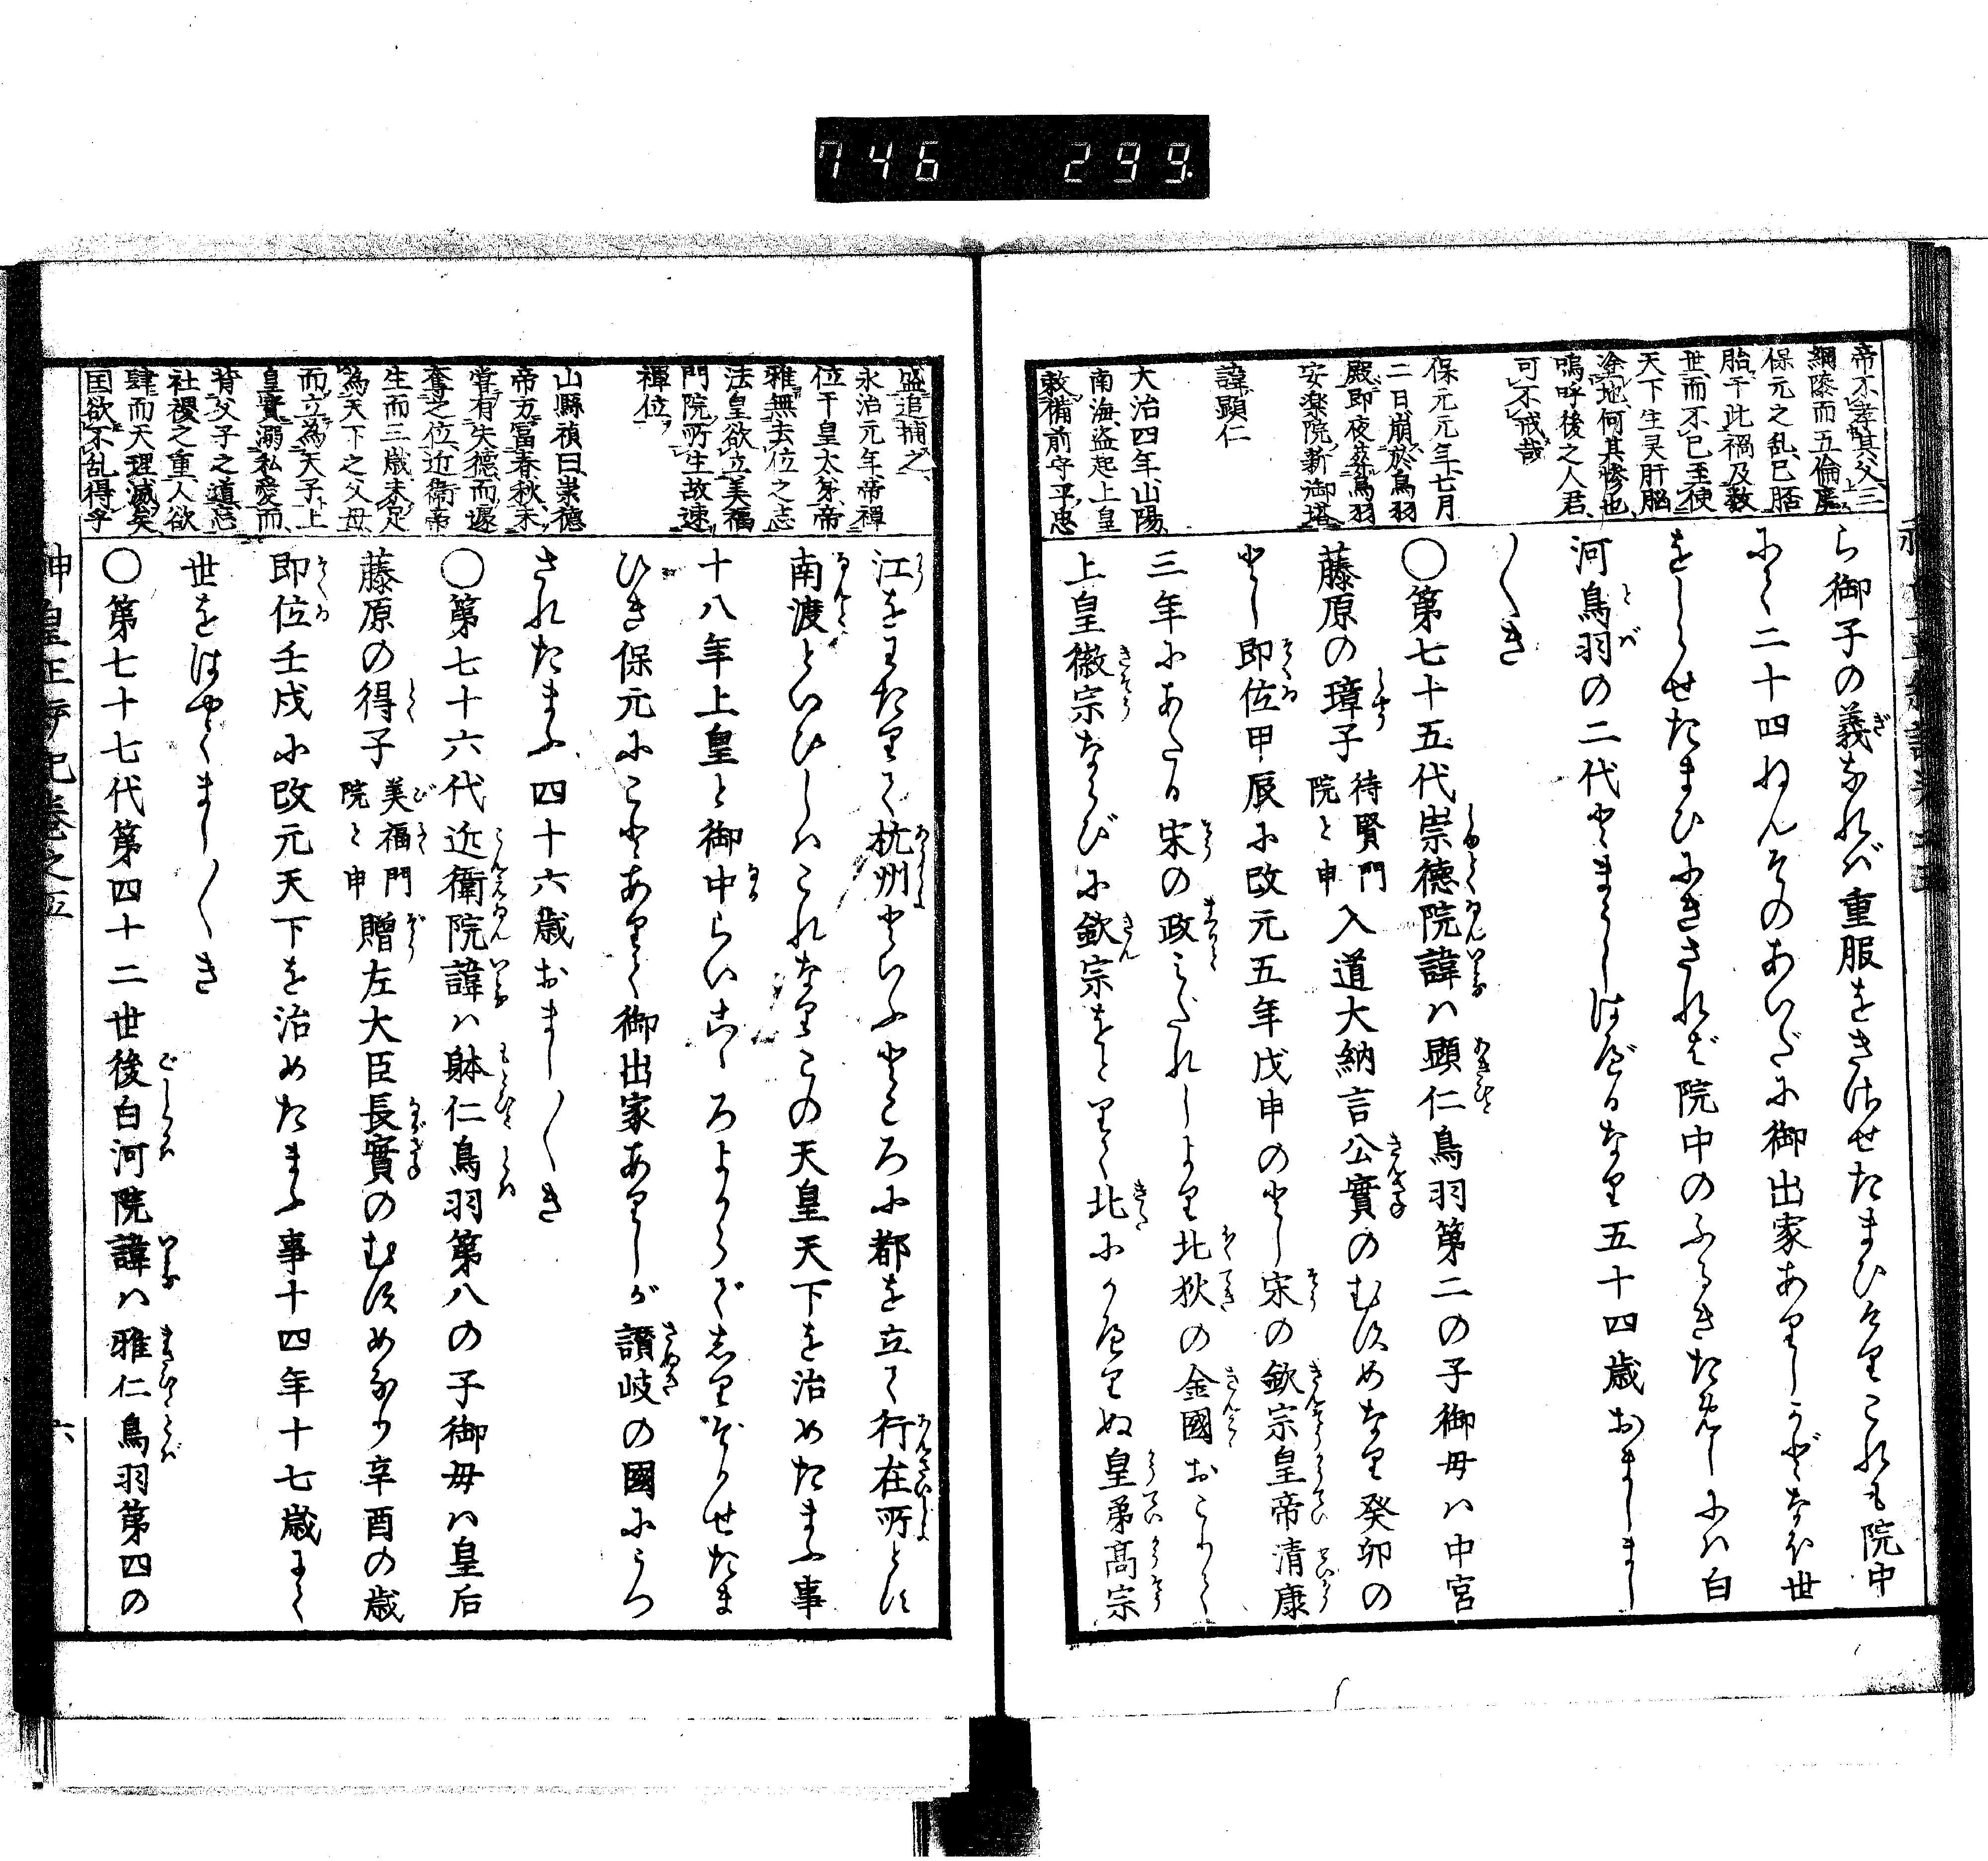 746 299
帝不孝其父三
綱隳而五倫廃
保元之乱已胚
胎于此禍及数
世而不已至使
天下生灵肝脳
塗地何其惨也
嗚呼後之人君
可不戒哉
保元元年七月
二日崩於鳥羽
殿即夜葬鳥羽
安楽院新御塔
諱顕仁
大治四年山陽
南海盗起上皇
敕備前守平忠
ら御子の義なれバ重服をきせたまひけりこれも院中
にて二十四ねんそのあいだに御出家ありしかどなほ世
をしらせたまひにきされば院中のふるきためしにハ白
河鳥羽の二代をまうしはべるなり五十四歳おましまし
〱き
〇第七十五代崇徳院諱ハ顕仁鳥羽第二の子御母ハ中宮
藤原の璋子待賢門院と申入道大納言公實のむすめなり癸卯の
とし即位甲辰に改元五年戊申のとし宋の欽宗皇帝清康
三年にあたる宋の政みだれしより北狄の金國おこりて
上皇徽宗ならびに欽宗をとりて北にかへりぬ皇弟髙宗
盛追捕之
永治元年帝禅
位于皇太弟帝
雅無去位之志
法皇欲立美福
門院所生故速
禅位
山縣禎曰崇徳
帝方富春秋未
嘗有失徳而遽
奪之位近衛帝
生而三歳未足
為天下之父母
而立為天子上
皇實溺私愛而
背父子之道忘
社稷之重人欲
肆而天理滅矣
国欲不乱得乎
江をわたりて杭州といふところに都を立て行在所とす
南渡といひしハこれなりこの天皇天下を治めたまふ事
十八年上皇と御中らいこゝろよからでしりぞかせたま
ひき保元にことありて御出家ありしが讃岐の國にうつ
されたまふ四十六歳おまし〱き
〇第七十六代近衛院諱ハ躰仁鳥羽第八の子御毋ハ皇后
藤原の得子美福門院と申贈左大臣長實のむすめなり辛酉の歳
即位壬戌に改元天下を治めたまふ事十四年十七歳にて
世をはやくまし〱き
〇第七十七代第四十二世後白河院諱ハ雅仁鳥羽第四の
神皇正統記巻之五
六